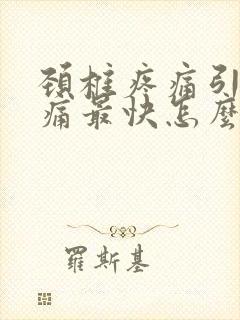 頸椎疼痛引
痛最快怎麼
羅斯基